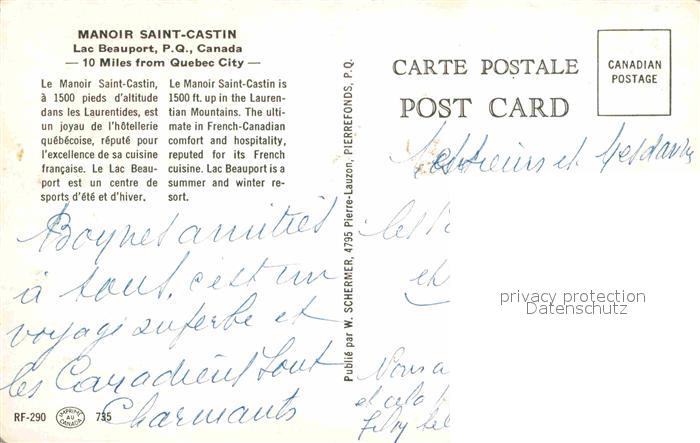 MANOIR SAINT-CASTIN
Lac Beauport, P.Q., Canada
— 10 Miles from Quebec City —
Le Manoir Saint-Castin,
à 1500 pieds d'altitude
dans les Laurentides, est
un joyau de l'hôtellerie
québécoise, réputé pour
l'excellence de sa cuisine
française. Le Lac Beau-
port est un centre de
sports d'été et d'hiver.
Le Manoir Saint-Castin is
1500 ft. up in the Lauren-
tian Mountains. The ulti-
mate in French-Canadian
comfort and hospitality,
reputed for its French
cuisine. Lac Beauport is a
summer and winter re-
sort.
Bonnes amitiés
à tous, c'est un
voyage superbe et
les Canadiens sont
Charmants
RF-290
IMPRIMÉ AU CANADA
735
Publié par W. SCHERMER, 4795 Pierre-Lauzon, PIERREFONDS, P.Q.
CARTE POSTALE
POST CARD
CANADIAN
POSTAGE
Messieurs et Mesdames
les
et
privacy protection
Datenschutz
Nous a
et cela